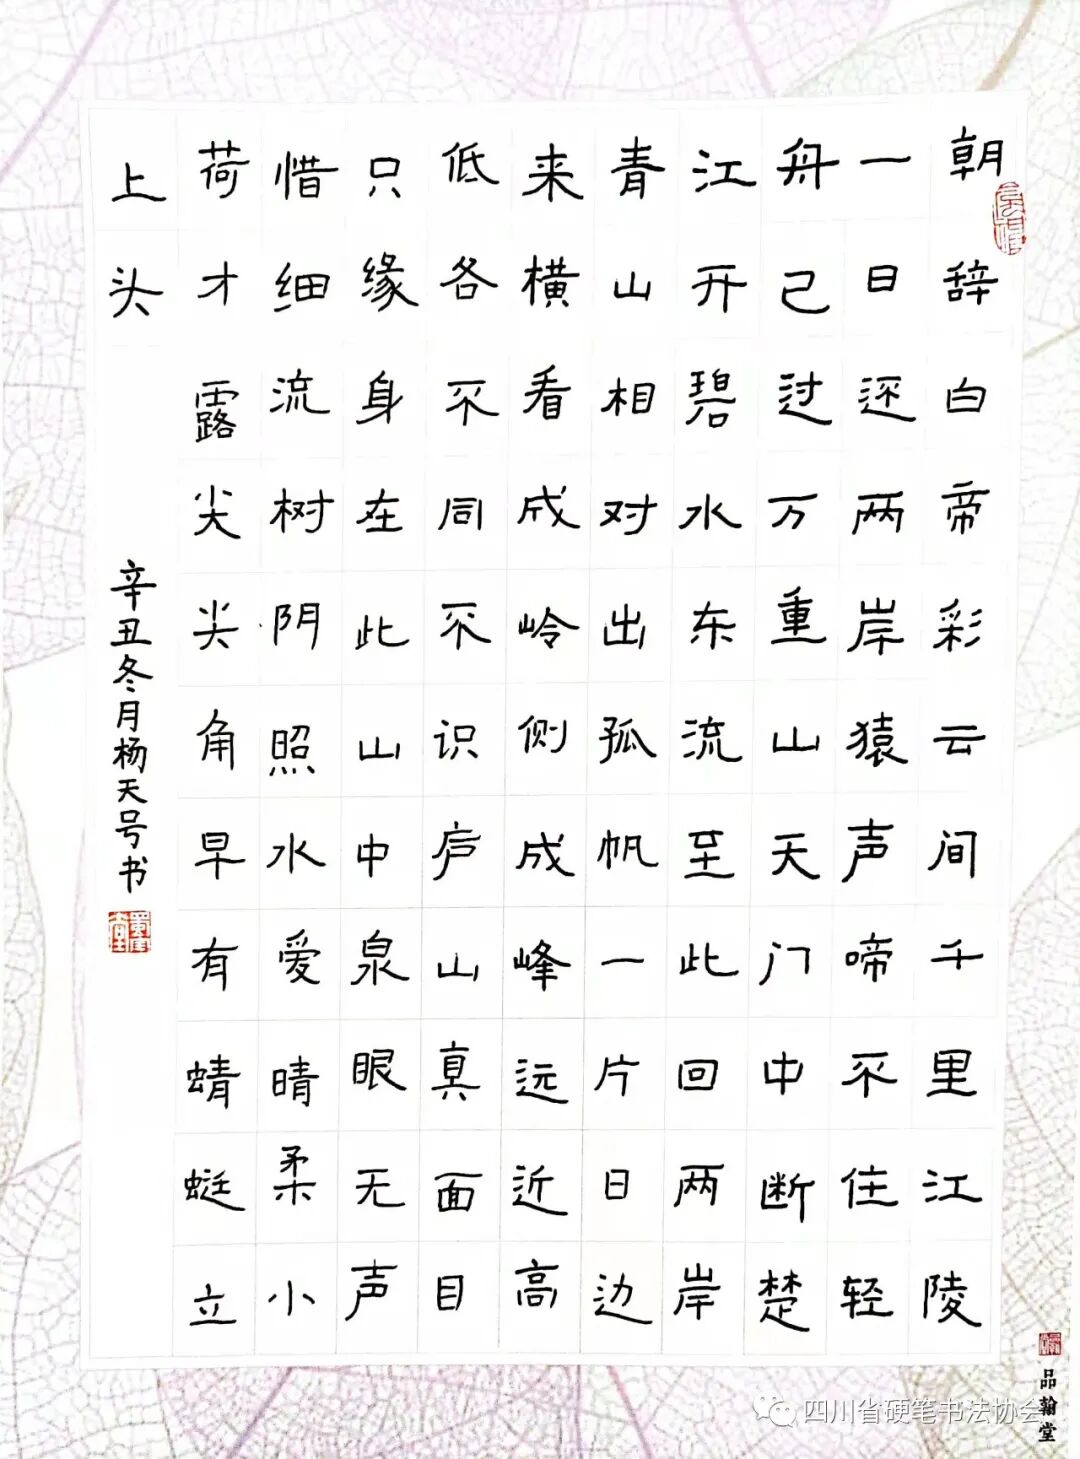 朝辞白帝彩云间千里江陵
一日还两岸猿声啼不住轻
舟已过万重山天门中断楚
江开碧水东流至此回两岸
青山相对出孤帆一片日边
来横看成岭侧成峰远近高
低各不同不识庐山真面目
只缘身在此山中泉眼无声
惜细流树阴照水爱晴柔小
荷才露尖尖角早有蜻蜓立
上头
辛丑冬月杨天号书
品翰堂
四川省硬笔书法协会